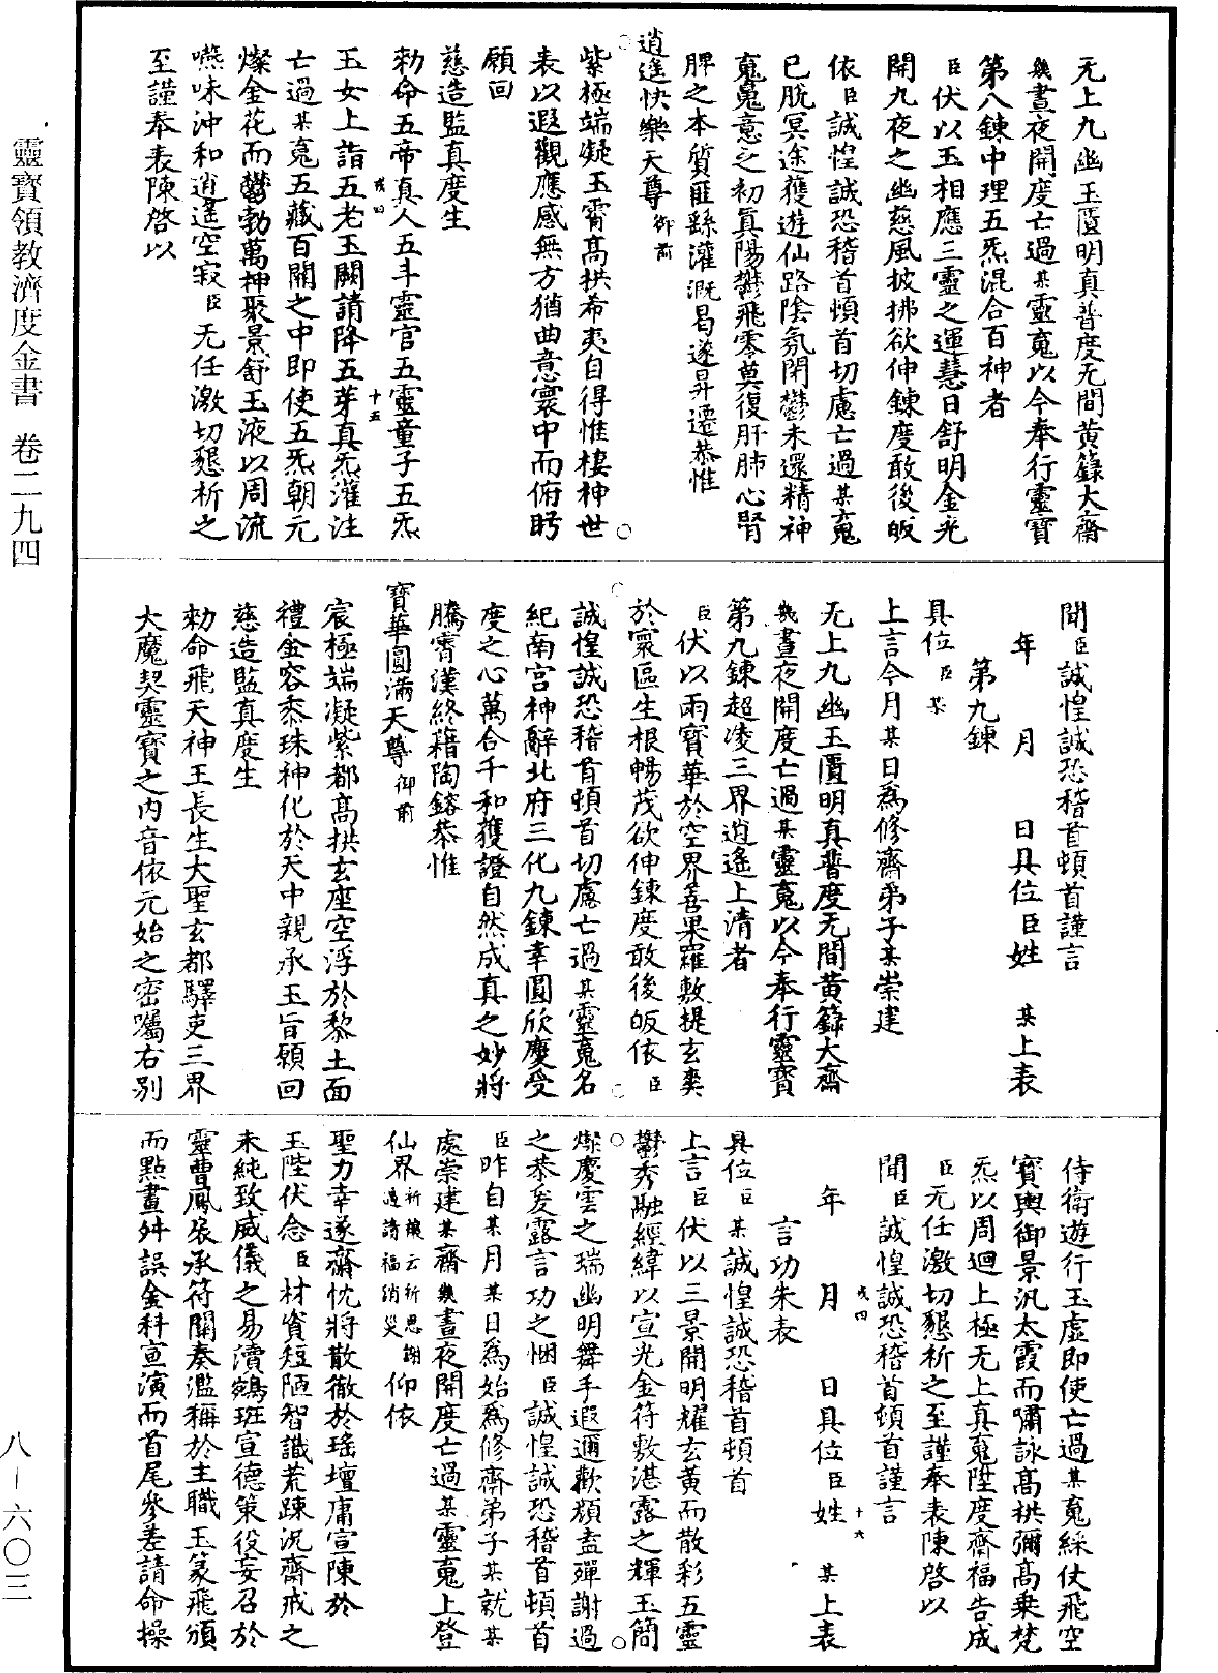 靈寶領教濟度金書　卷二九四
无上九幽玉匱明真普度无間黄籙大齋
幾晝夜開度亡過某靈䰟以今奉行靈寶
第八鍊中理五炁混合百神者
臣伏以玉相應三靈之運慧日舒明金光
開九夜之幽慈風披拂欲伸鍊度敢後皈
依臣誠惶誠恐稽首頓首切慮亡過某䰟
已脫冥途獲遊仙路陰氛閉鬱未還精神
䰟䰟意之初真陽鬱飛零莫復肝肺心腎
脾之本質匪繇灌溉曷遂昇遷恭惟
逍遥快樂天尊御前
紫極端凝玉霄髙拱希夷自得惟棲神世
表以遐觀應感無方猶曲意寰中而俯眄
願回
慈造監真度生
勑命五帝真人五斗靈官五靈童子五炁
戌四
玉女上詣五老玉闕請降五芽真炁灌注
十五
亡過某䰟五藏百關之中即使五炁朝元
燦金花而鬱勃萬神聚景舒玉液以周流
嚥味沖和逍遥空寂臣无任激切懇祈之
至謹奉表陳啓以
聞臣誠惶誠恐稽首頓首謹言
年　月　日具位臣姓　某上表
第九鍊
具位臣某
上言今月某日為修齋弟子某崇建
无上九幽玉匱明真普度无間黄籙大齋
幾晝夜開度亡過某靈䰟以今奉行靈寶
第九鍊超淩三界逍遥上清者
臣伏以雨寶華於空界善果羅敷提玄奬
於寰區生根暢茂欲伸鍊度敢後皈依臣
誠惶誠恐稽首頓首切慮亡過某靈䰟名
紀南宫神辭北府三化九鍊幸圓欣慶受
度之心萬合千和獲證自然成真之妙將
騰霄漢終藉陶鎔恭惟
寶華圓滿天尊御前
宸極端凝紫都髙拱玄座空浮於黎土面
禮金容黍珠神化於天中親承玉旨願回
慈造監真度生
勑命飛天神王長生大聖玄都驛吏三界
大魔契靈寶之内音依元始之密囑右别
侍衛遊行玉虚即使亡過某䰟綵仗飛空
寶輿御景汎太霞而嘯詠髙拱彌髙乗梵
炁以周迴上極无上真䰟陞度齋福告成
臣无任激切懇祈之至謹奉表陳啓以
聞臣誠惶誠恐稽首頓首謹言
戌四
年　月　日具位臣姓　某上表
十六
言功朱表
具位臣某誠惶誠恐稽首頓首
上言臣伏以三景開明耀玄黄而散彩五靈
鬱秀融經緯以宣光金符敷湛露之輝玉簡
燦慶雲之瑞幽明舞手遐邇歡顔盍殫謝過
之恭爰露言功之悃臣誠惶誠恐稽首頓首
臣昨自某月某日為始為修齋弟子某就某
處崇建某齋幾晝夜開度亡過某靈䰟上登
仙界祈禳云祈恩謝過請福消災仰依
聖力幸遂齋忱將散徹於瑤壇庸宣陳於
玉陛伏念臣材資短陋智識荒踈況齋戒之
未純致威儀之易瀆鵷班宣德策役妄召於
靈曹鳳扆承符關奏濫稱於主職玉篆飛頒
而點畫舛誤金科宣演而首尾參差請命操
八－六〇三